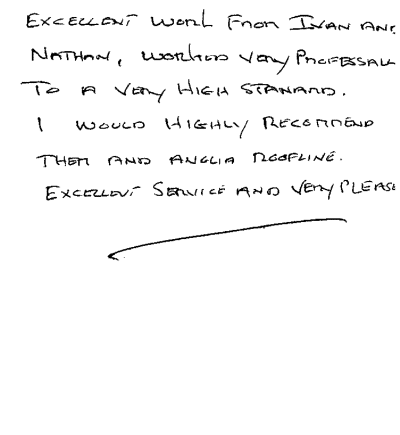 EXCELLENT WORK FROM IVAN AND
NATHAN, WORKED VERY PROFESSALL
TO A VERY HIGH STANARD.
I WOULD HIGHLY RECOMMEND
THEM AND ANGLIA ROOFLINE.
EXCELLENT SERVICE AND VERY PLEASE